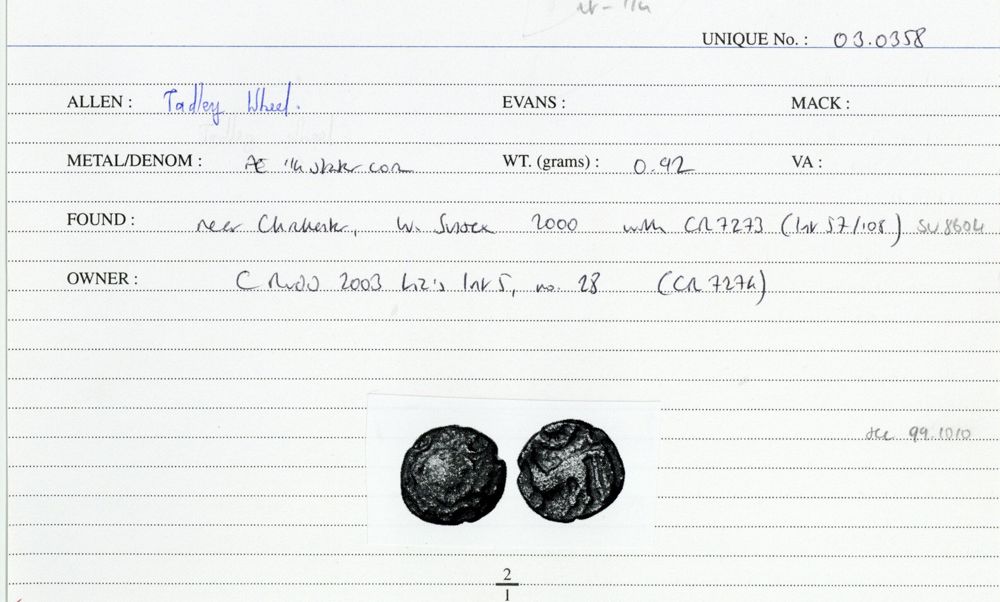 UNIQUE No. : 03.0358
ALLEN : Tadley Wheel. EVANS : MACK :
METAL/DENOM : Æ 1/4 stater core WT. (grams) : 0.92 VA :
FOUND : near Chichester, W. Sussex 2000 with CR7273 (Inv 57/108) SU 8604
OWNER : C Rudd 2003 Liz's Inv 5, no. 28 (CR 7274)
99.1010
2
1